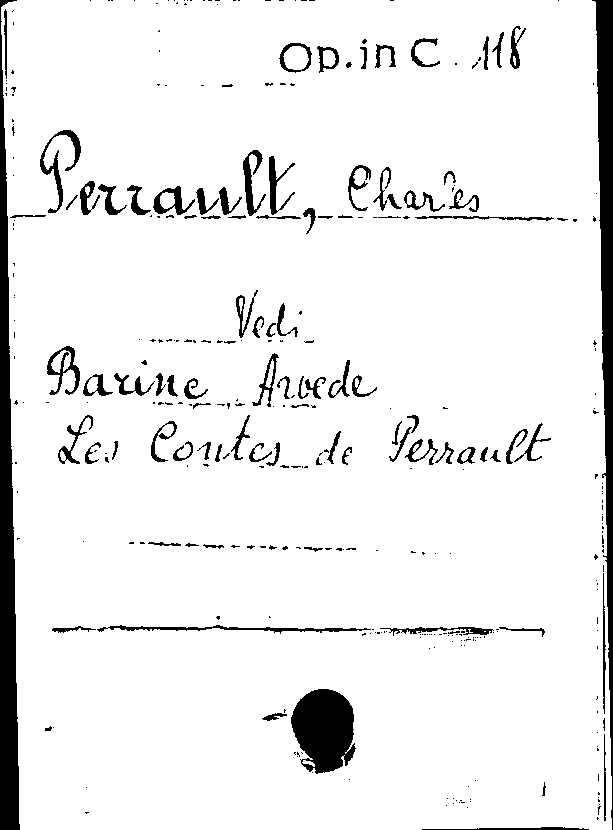 Op. in C 118
Perrault, Charles
Vedi
Barine Arvede
Les Contes de Perrault